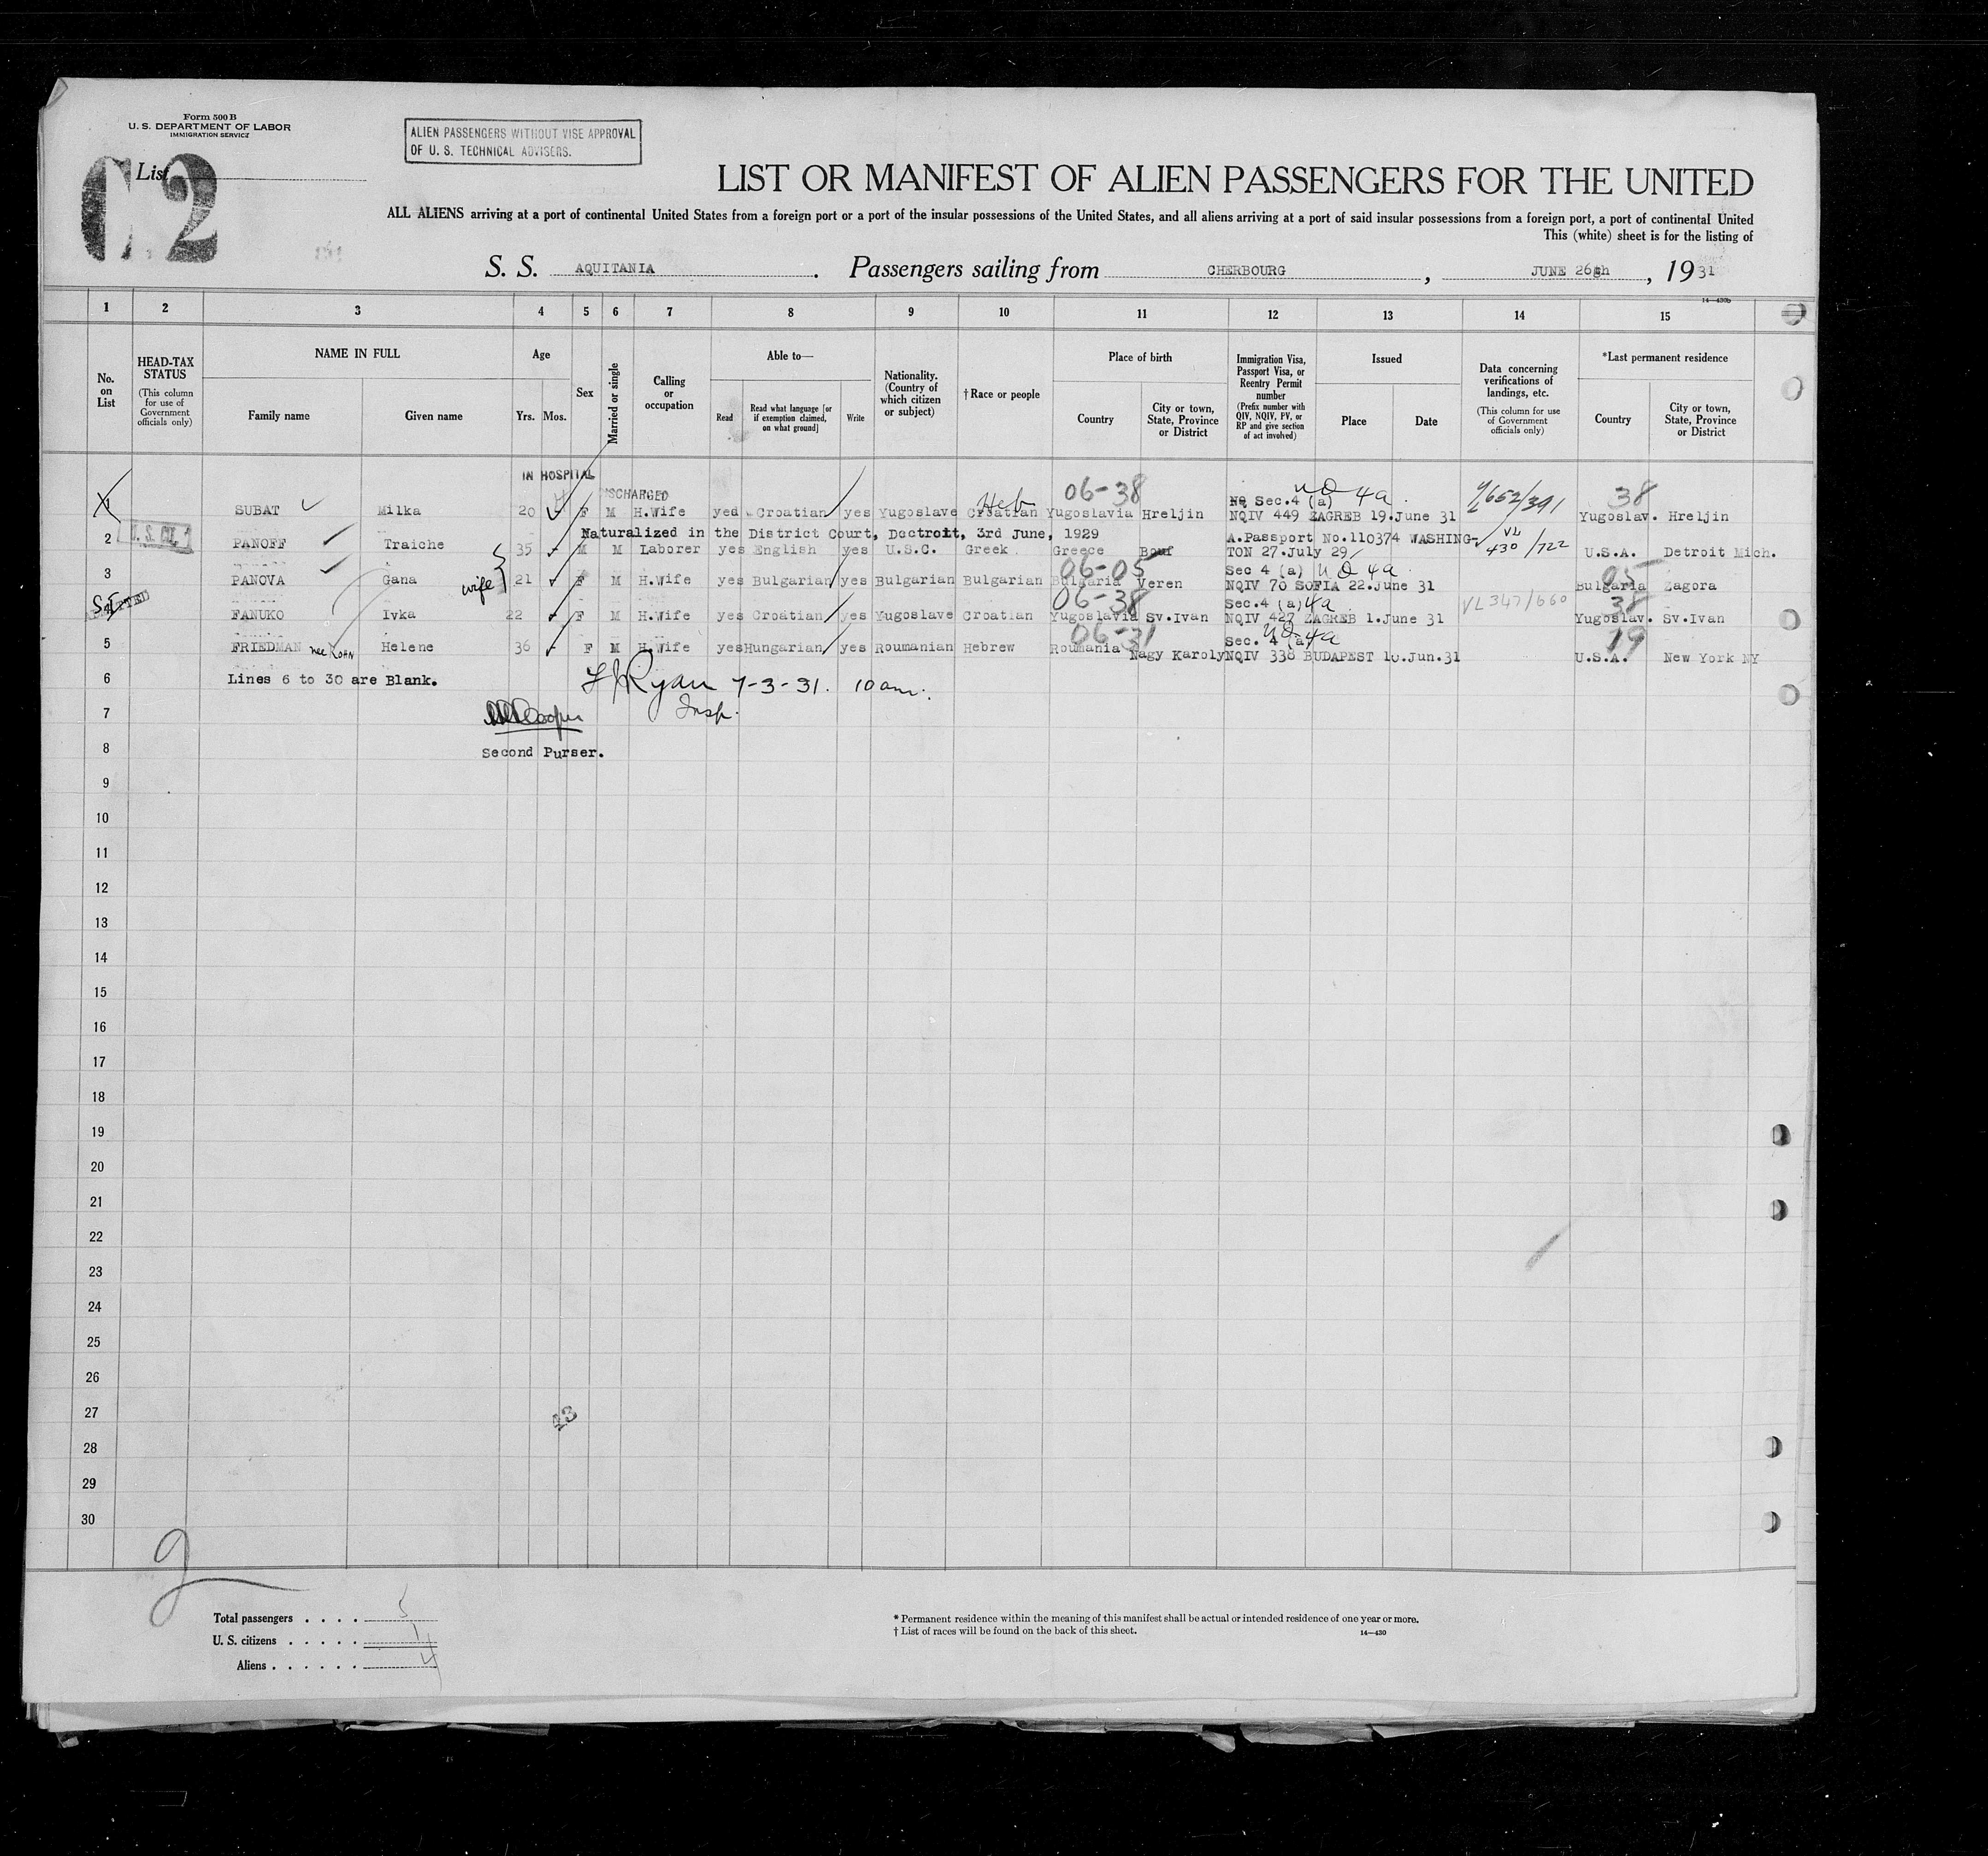 Form 500 B
U. S. DEPARTMENT OF LABOR
IMMIGRATION SERVICE
ALIEN PASSENGERS WITHOUT VISE APPROVAL
OF U. S. TECHNICAL ADVISERS.
List
2
LIST OR MANIFEST OF ALIEN PASSENGERS FOR THE UNITED
ALL ALIENS arriving at a port of continental United States from a foreign port or a port of the insular possessions of the United States, and all aliens arriving at a port of said insular possessions from a foreign port, a port of continental United
This (white) sheet is for the listing of
S. S. AQUITANIA. Passengers sailing from CHERBOURG, JUNE 26th, 1931
14—430b
1 2 3 4 5 6 7 8 9 10 11 12 13 14 15
No. on List
HEAD-TAX STATUS (This column for use of Government officials only)
NAME IN FULL
Family name
Given name
Age
Yrs.
Mos.
Sex
Married or single
Calling or occupation
Able to—
Read
Read what language [or if exemption claimed, on what ground]
Write
Nationality. (Country of which citizen or subject)
† Race or people
Place of birth
Country
City or town, State, Province or District
Immigration Visa, Passport Visa, or Reentry Permit number (Prefix number with QIV, NQIV, PV, or RP and give section of act involved)
Issued
Place
Date
Data concerning verifications of landings, etc. (This column for use of Government officials only)
*Last permanent residence
Country
City or town, State, Province or District
IN HOSPITAL
DISCHARGED Heb 06-38 NQ Sec.4 (a) 4a 38
1 SUBAT Milka 20 F M H.Wife yed Croatian yes Yugoslave Croatian Yugoslavia Hreljin NQIV 449 ZAGREB 19.June 31 Yugoslav. Hreljin
Naturalized in the District Court, Dectroit, 3rd June, 1929 A.Passport No.110374 WASHING- VL 430/722
2 U.S. CIT. PANOFF Traiche 35 M M Laborer yes English yes U.S.C. Greek Greece Bouf TON 27.July 29 U.S.A. Detroit Mich.
06-05 Sec 4 (a) 4a 05
3 PANOVA Gana wife 21 F M H.Wife yes Bulgarian yes Bulgarian Bulgarian Bulgaria Veren NQIV 70 SOFIA 22.June 31 Bulgaria Zagora
06-38 Sec.4 (a) 4a VL 347/660 38
FANUKO Ivka 22 F M H.Wife yes Croatian yes Yugoslave Croatian Yugoslavia Sv.Ivan NQIV 427 ZAGREB 1.June 31 Yugoslav. Sv.Ivan
06-31 Sec. 4 (a 4a 19
5 FRIEDMAN nee KOHN Helene 36 F M H.Wife yes Hungarian yes Roumanian Hebrew Roumania Nagy Karoly NQIV 338 BUDAPEST 10.Jun.31 U.S.A. New York NY
6 Lines 6 to 30 are Blank. Ryan 7-3-31. 10 am.
7 Insp.
8 Second Purser.
9
10
11
12
13
14
15
16
17
18
19
20
21
22
23
24
25
26
27
28
29
30
Total passengers . . . . 5
U. S. citizens . . . . . 1
Aliens . . . . . . 4
* Permanent residence within the meaning of this manifest shall be actual or intended residence of one year or more.
† List of races will be found on the back of this sheet.
14—430